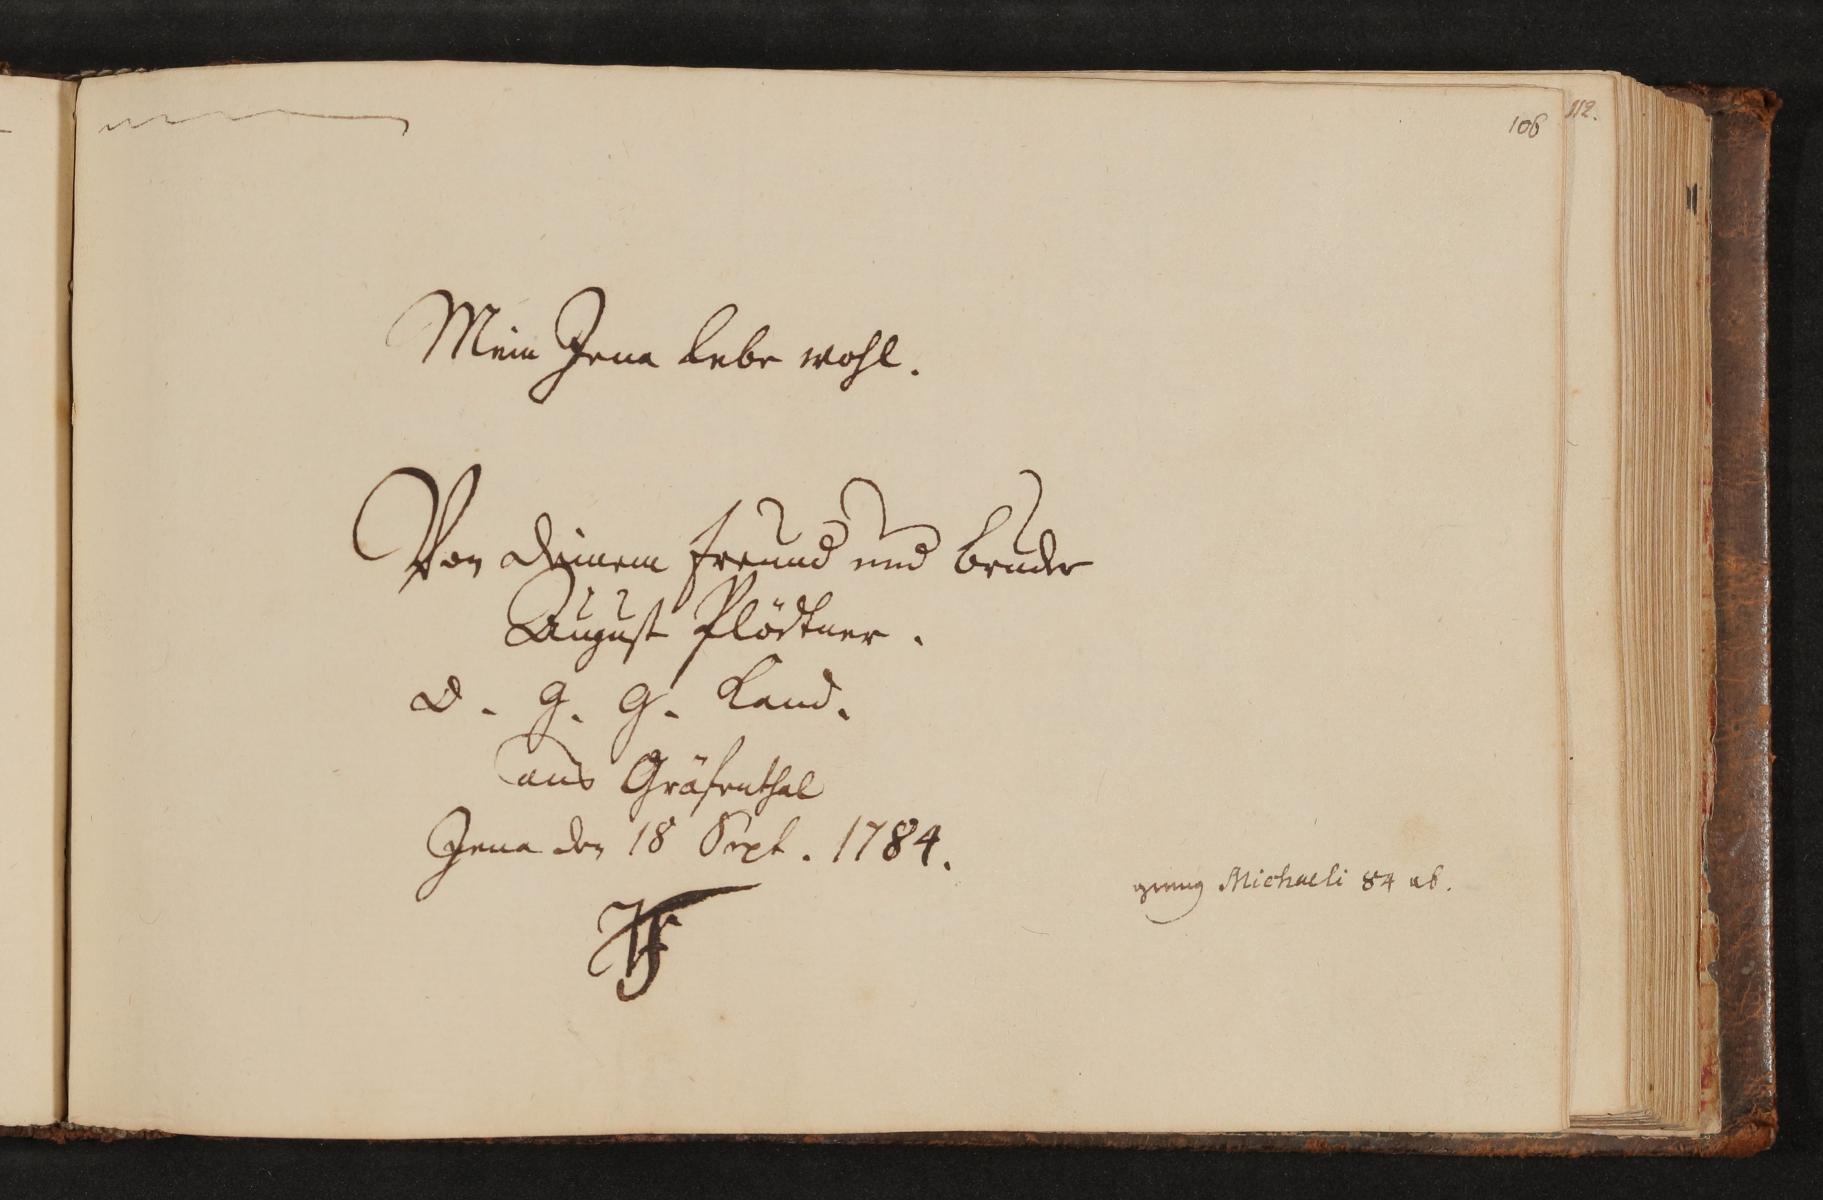 106
112.
Mein Jena lebe wohl.
Von deinem Freund und Bruder
August Plödtner.
D. G. G. Cand.
aus Gräfenthal
Jena den 18 Sept. 1784.
gieng Michaeli 84 ab.